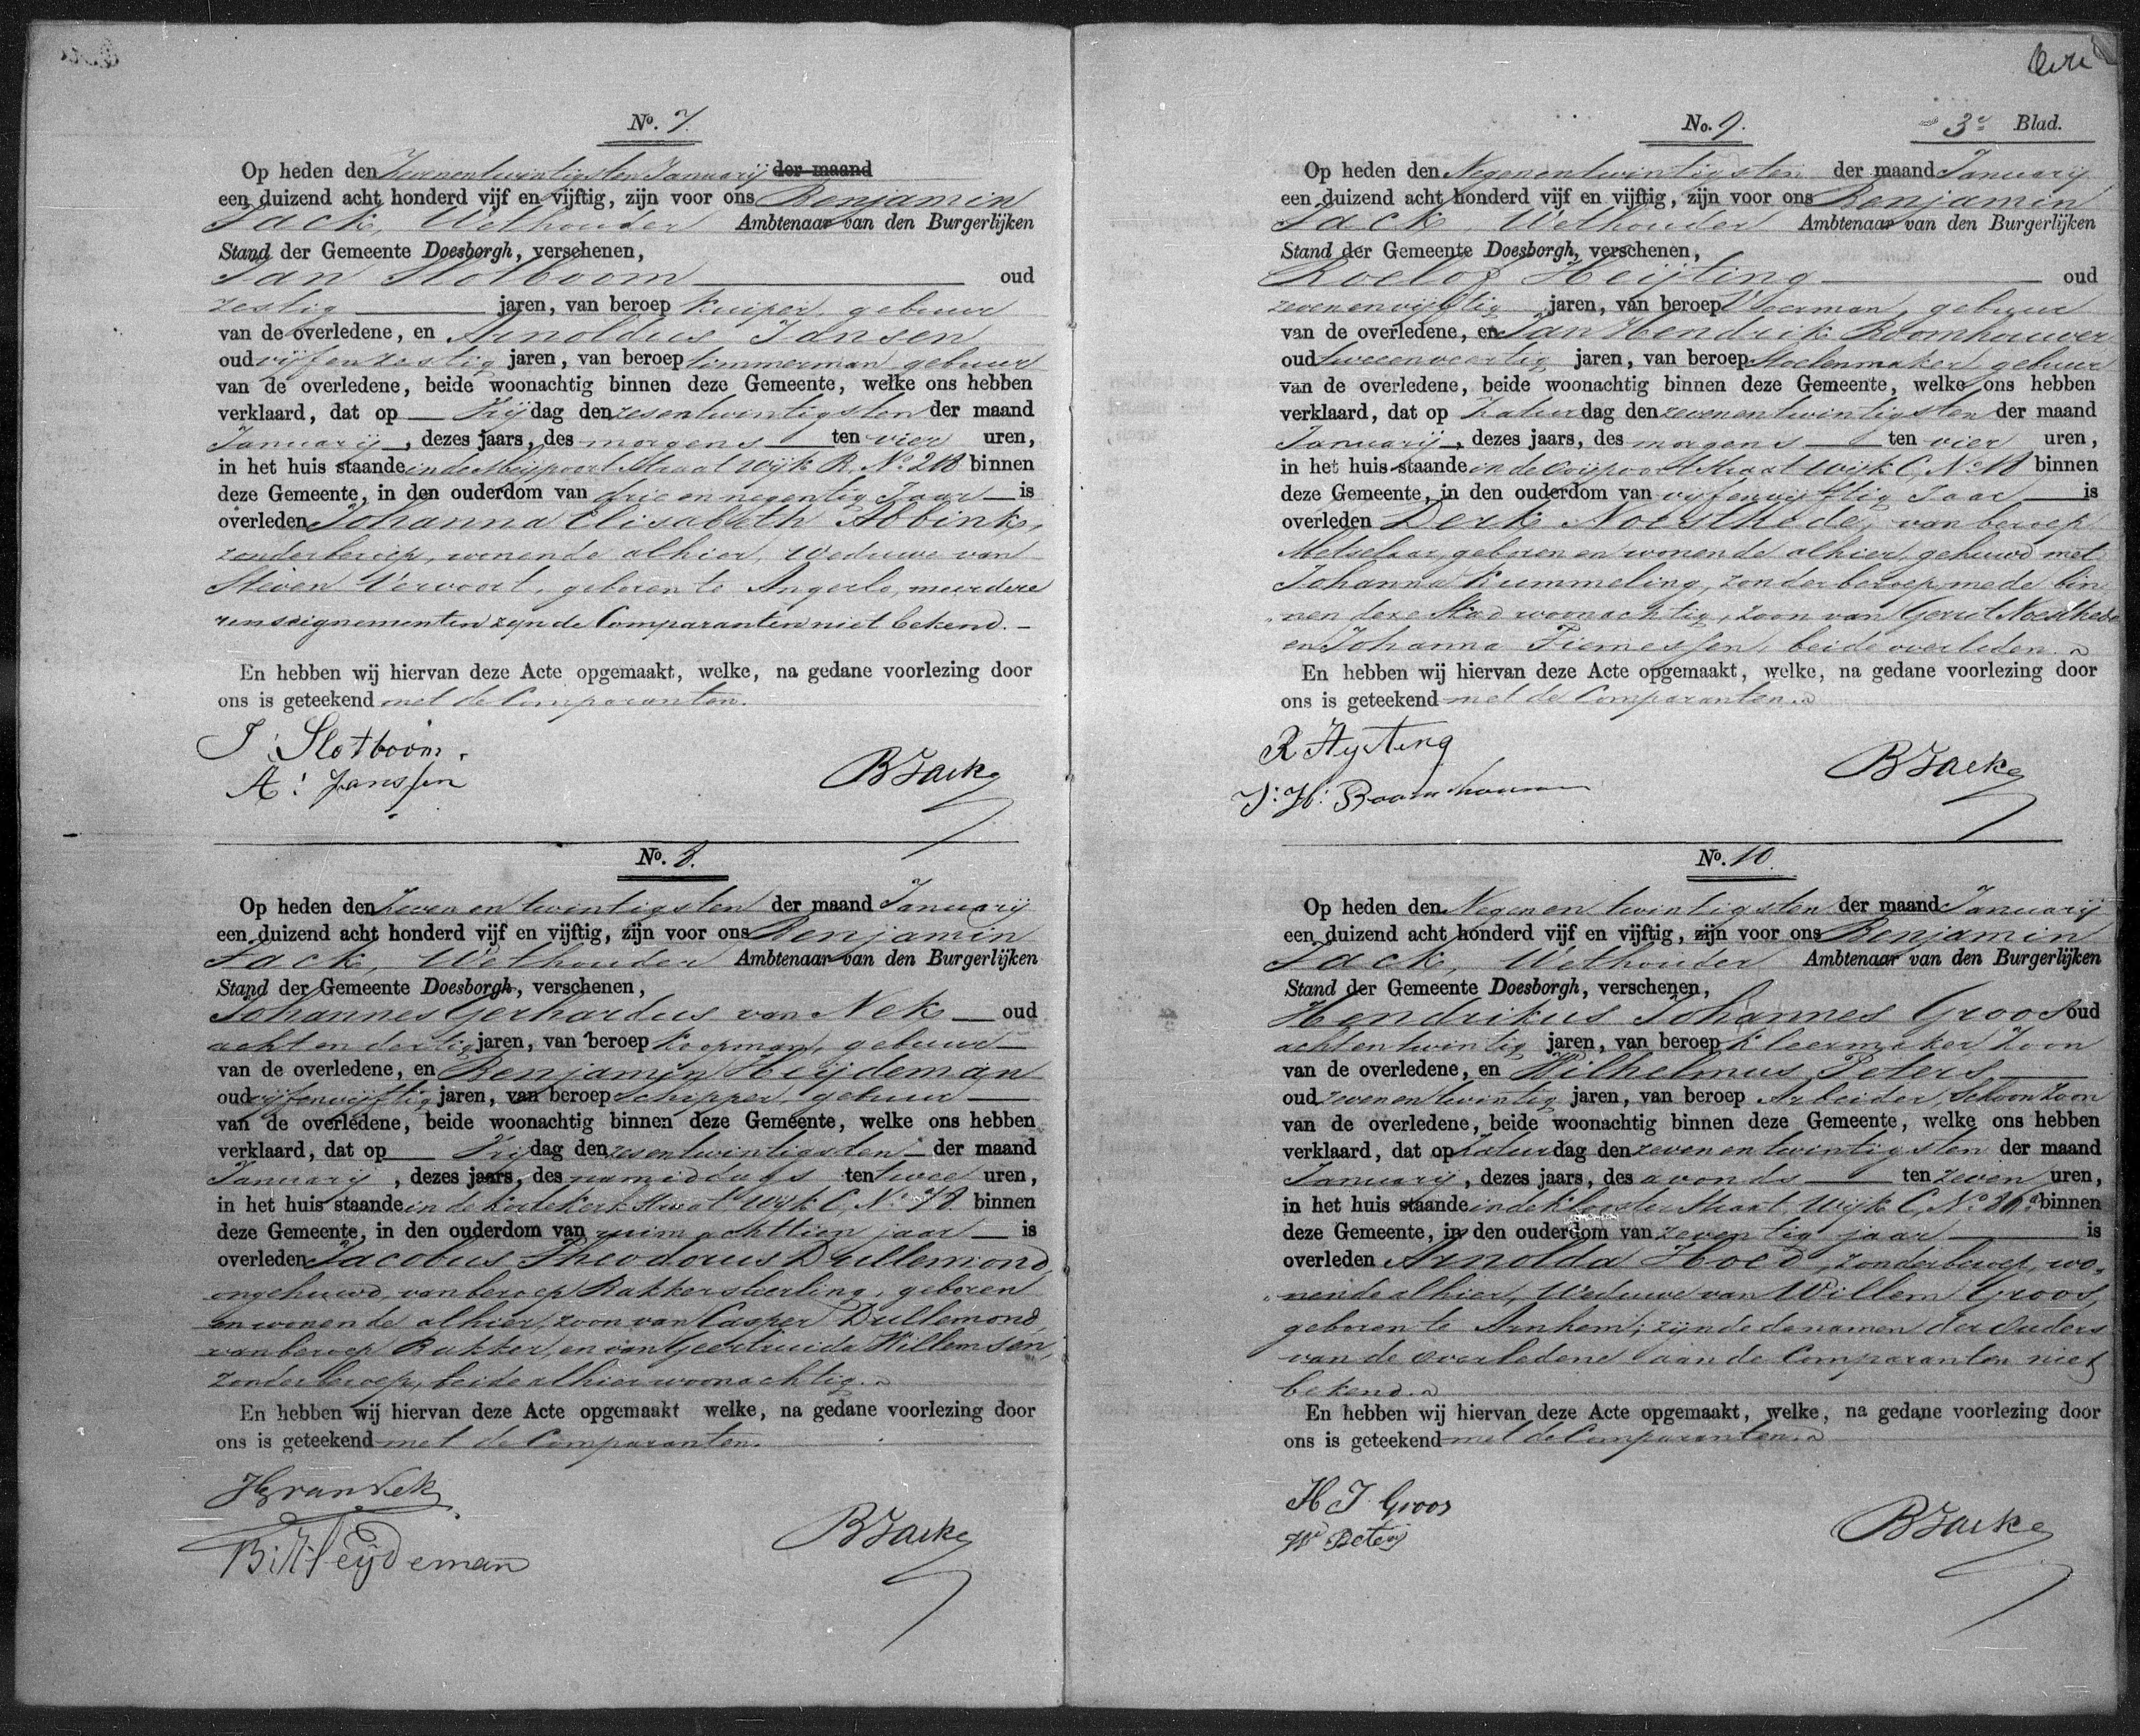 No. 7.
Op heden den Zevenentwintigsten Januarij der maand
een duizend acht honderd vijf en vijftig, zijn voor ons Benjamin
Jack, Wethouder Ambtenaar van den Burgerlijken
Stand der Gemeente Doesborgh, verschenen,
Jan Slotboom oud
zestig jaren, van beroep Kuiper, gebuur
van de overledene, en Arnoldus Jansen
oud vijfenzestig jaren, van beroep timmerman gebuur
van de overledene, beide woonachtig binnen deze Gemeente, welke ons hebben
verklaard, dat op Vrijdag den zesentwintigsten der maand
Januarij, dezes jaars, des morgens ten vier uren,
in het huis staande in de Meijpoort Straat Wijk B, No. 218 binnen
deze Gemeente, in den ouderdom van drie en negentig Jaar is
overleden Johanna Elisabeth Abbink,
zonder beroep, wonende alhier, Weduwe van
Steven Vervoort, geboren te Angerlo, meerdere
renseignementen zijn de Comparanten niet bekend.
En hebben wij hiervan deze Acte opgemaakt, welke, na gedane voorlezing door
ons is geteekend met de Comparanten.
J: Slotboom.
A: Janssen
BJack
No. 8.
Op heden den Zeven en twintigsten der maand Januarij
een duizend acht honderd vijf en vijftig, zijn voor ons Benjamin
Jack, Wethouder Ambtenaar van den Burgerlijken
Stand der Gemeente Doesborgh, verschenen,
Johannes Gerhardus van Nek oud
acht en dertig jaren, van beroep Koopman, gebuur
van de overledene, en Benjamin Heijdeman
oud vijfenvijftig jaren, van beroep Schipper, gebuur
van de overledene, beide woonachtig binnen deze Gemeente, welke ons hebben
verklaard, dat op Vrijdag den zesentwintigsten der maand
Januarij, dezes jaars, des namiddags ten twee uren,
in het huis staande in de Korte Kerk Straat Wijk C, No. 78 binnen
deze Gemeente, in den ouderdom van ruim achttien jaar is
overleden Jacobus Theodorus Dullemond,
ongehuwd, van beroep Bakkersleerling, geboren
en wonende alhier, zoon van Casper Dullemond,
van beroep Bakker, en van Geertruida Willemsen,
zonder beroep, beide alhier woonachtig.
En hebben wij hiervan deze Acte opgemaakt welke, na gedane voorlezing door
ons is geteekend met de Comparanten.
van Nek
B: Heijdeman
BJack
No. 9.
3e Blad.
Op heden den Negenentwintigsten der maand Januarij
een duizend acht honderd vijf en vijftig, zijn voor ons Benjamin
Jack, Wethouder Ambtenaar van den Burgerlijken
Stand der Gemeente Doesborgh, verschenen,
Roelof Heijting oud
zevenenvijftig jaren, van beroep Voerman, gebuur
van de overledene, en Jan Hendrik Boomhouwer
oud tweeenveertig jaren, van beroep Stoelenmaker, gebuur
van de overledene, beide woonachtig binnen deze Gemeente, welke ons hebben
verklaard, dat op Zaturdag den zevenentwintigsten der maand
Januarij, dezes jaars, des morgens ten vier uren,
in het huis staande in de Ooijpoort Straat Wijk C, No. 18 binnen
deze Gemeente, in den ouderdom van vijfenvijftig Jaar is
overleden Derk Noesthede, van beroep
Metselaar, geboren en wonende alhier, gehuwd met
Johanna Kummeling, zonder beroep, mede bin
nen deze Stad woonachtig, zoon van Gerrit Noesthede
en Johanna Tiemessen, beide overleden.
En hebben wij hiervan deze Acte opgemaakt, welke, na gedane voorlezing door
ons is geteekend met de Comparanten.
R Hijting
J: H: Boomhouwer
BJack
No. 10.
Op heden den Negenentwintigsten der maand Januarij
een duizend acht honderd vijf en vijftig, zijn voor ons Benjamin
Jack, Wethouder Ambtenaar van den Burgerlijken
Stand der Gemeente Doesborgh, verschenen,
Hendrikus Johannes Groos oud
achtentwintig jaren, van beroep Kleermaker, Zoon
van de overledene, en Wilhelmus Peters
oud zevenentwintig jaren, van beroep Arbeider, Schoonzoon
van de overledene, beide woonachtig binnen deze Gemeente, welke ons hebben
verklaard, dat op Zaturdag den zevenentwintigsten der maand
Januarij, dezes jaars, des avonds ten zeven uren,
in het huis staande in de Klooster Straat, Wijk C, No. 20a binnen
deze Gemeente, in den ouderdom van zeventig jaar is
overleden Arnolda Hoed, zonder beroep, wo
nende alhier, Weduwe van Willem Groos,
geboren te Arnhem; zijnde de namen der Ouders
van de overledene aan de Comparanten niet
bekend.
En hebben wij hiervan deze Acte opgemaakt, welke, na gedane voorlezing door
ons is geteekend met de Comparanten.
H J Groos
W Peters
BJack